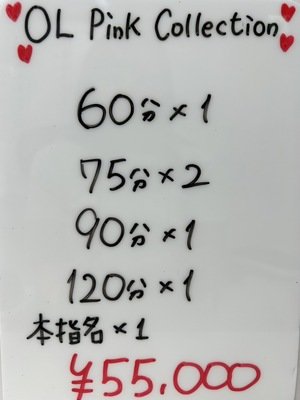 OL Pink Collection
60分×1
75分×2
90分×1
120分×1
本指名×1
¥55,000